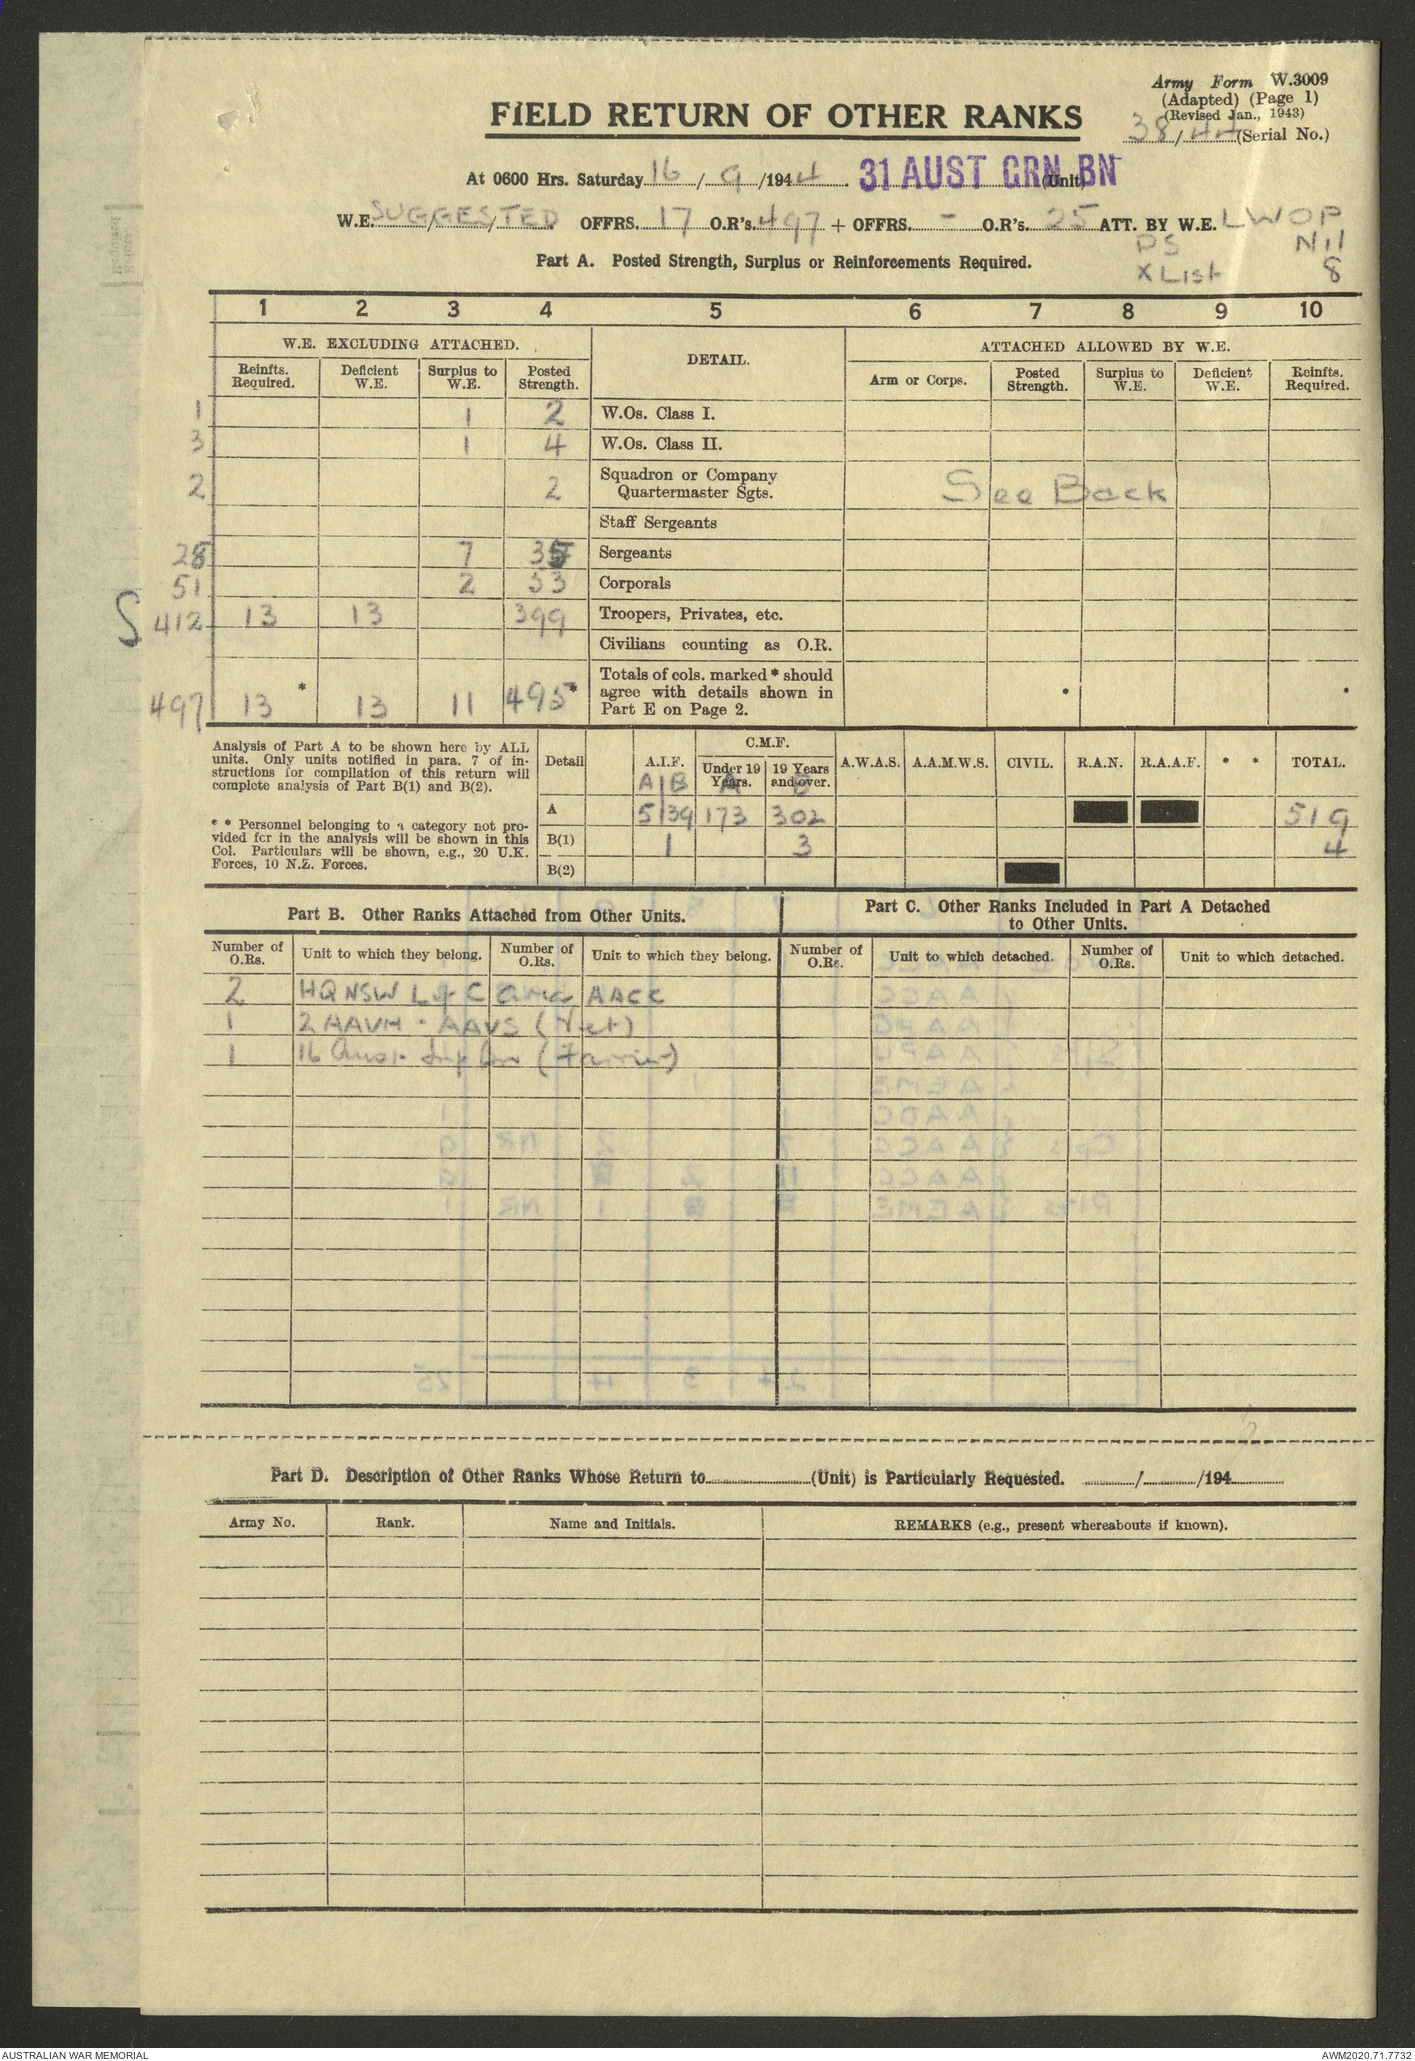 Army Form W.3009
(Adapted) (Page 1)
(Revised Jan., 1943)
38/44 (Serial No.)
FIELD RETURN OF OTHER RANKS
At 0600 Hrs. Saturday 16/9/1944. 31 AUST GRN BN (Unit)
W.E. SUGGESTED OFFRS. 17 O.R's. 497 + OFFRS. - O.R's. 25 ATT. BY W.E. LWOP
PS Nil
X List 8
Part A. Posted Strength, Surplus or Reinforcements Required.
1 2 3 4 5 6 7 8 9 10
W.E. EXCLUDING ATTACHED. DETAIL. ATTACHED ALLOWED BY W.E.
Reinfts. Required. Deficient W.E. Surplus to W.E. Posted Strength. Arm or Corps. Posted Strength. Surplus to W.E. Deficient W.E. Reinfts. Required.
1 1 2 W.Os. Class I.
3 1 4 W.Os. Class II.
2 2 Squadron or Company Quartermaster Sgts. See Back
Staff Sergeants
28 7 35 Sergeants
51 2 53 Corporals
412 13 13 399 Troopers, Privates, etc.
Civilians counting as O.R.
497 13 * 13 11 495 * Totals of cols. marked * should agree with details shown in Part E on Page 2.
Analysis of Part A to be shown here by ALL
units. Only units notified in para. 7 of in-
structions for compilation of this return will
complete analysis of Part B(1) and B(2).
* * Personnel belonging to a category not pro-
vided for in the analysis will be shown in this
Col. Particulars will be shown, e.g., 20 U.K.
Forces, 10 N.Z. Forces.
Detail A.I.F. C.M.F. Under 19 Years. 19 Years and over. A.W.A.S. A.A.M.W.S. CIVIL. R.A.N. R.A.A.F. * * TOTAL.
A B A B
A 5 39 173 302 519
B(1) 1 3 4
B(2)
Part B. Other Ranks Attached from Other Units.
Part C. Other Ranks Included in Part A Detached
to Other Units.
Number of O.Rs. Unit to which they belong. Number of O.Rs. Unit to which they belong. Number of O.Rs. Unit to which detached. Number of O.Rs. Unit to which detached.
2 HQ NSW L of C area AACC
1 2 AAVH - AAVS (Vet)
1 16 (Farrier)
Part D. Description of Other Ranks Whose Return to (Unit) is Particularly Requested. / /194
Army No. Rank. Name and Initials. REMARKS (e.g., present whereabouts if known).
AUSTRALIAN WAR MEMORIAL AWM2020.71.7732